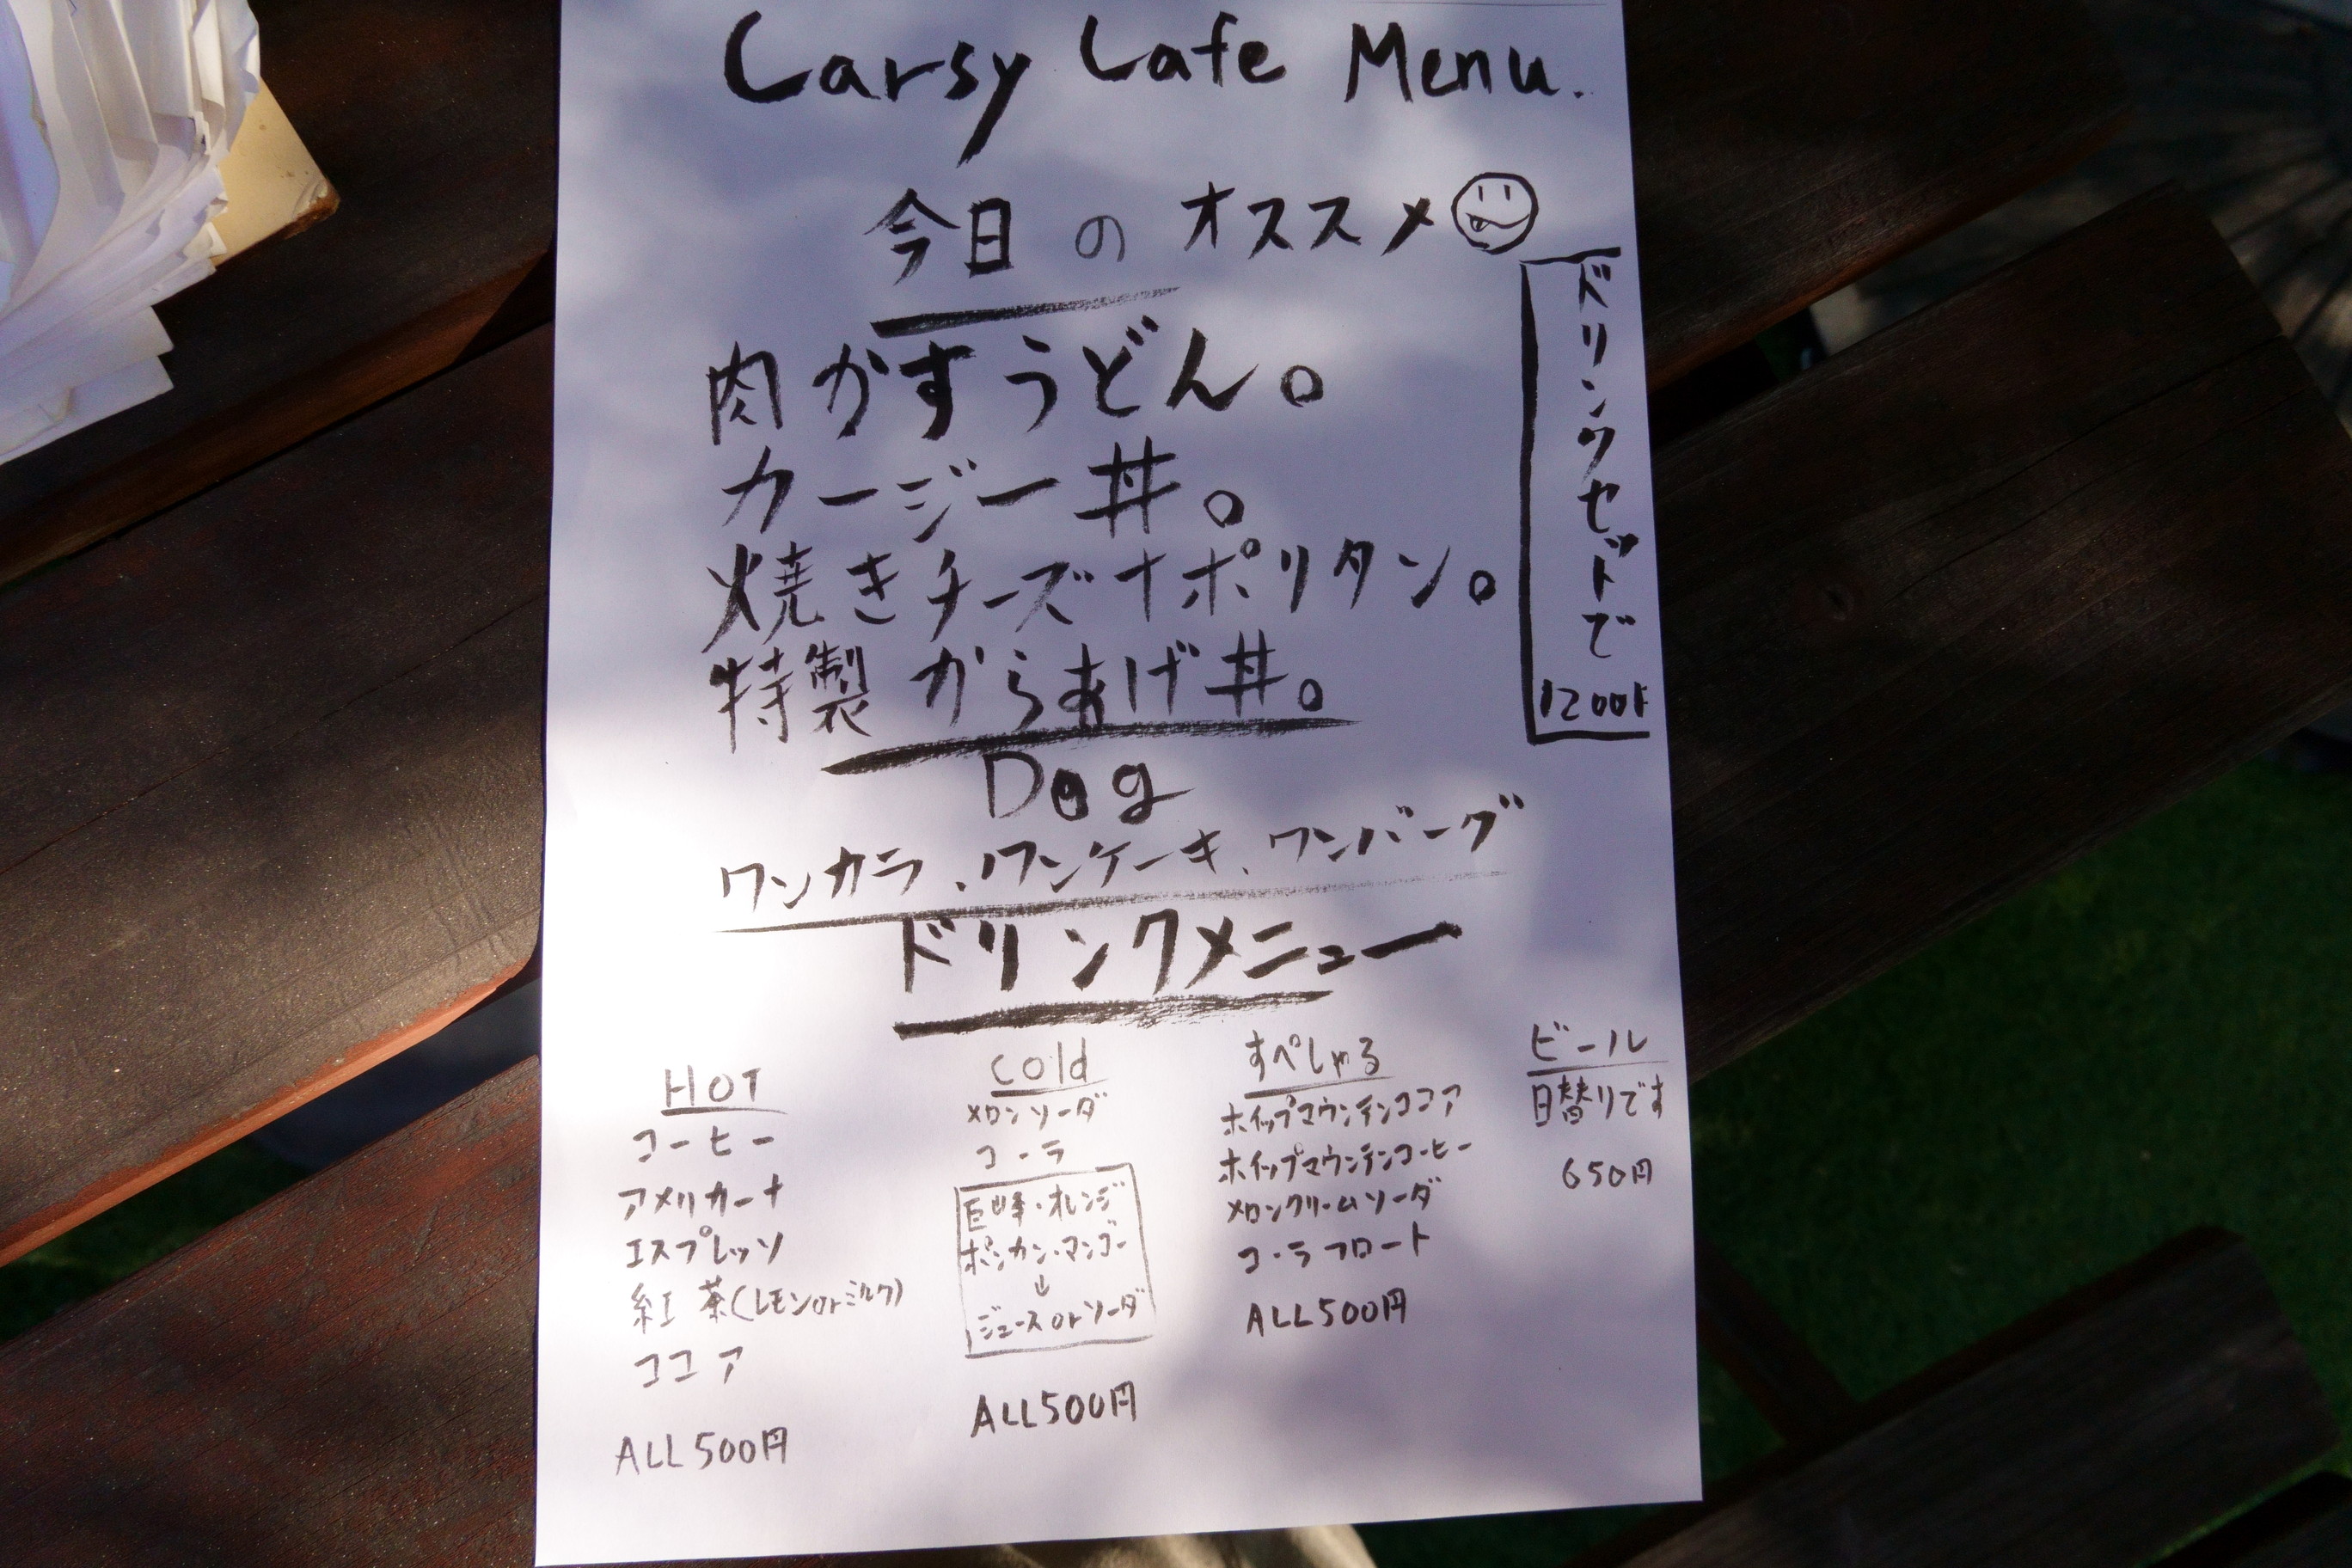 Carsy Cafe Menu.
今日のオススメ
肉かすうどん。
カージー丼。
焼きチーズナポリタン。
特製からあげ丼。
ドリンクセットで
1200
Dog
ワンカラ、ワンケーキ、ワンバーグ
ドリンクメニュー
HOT
コーヒー
アメリカーナ
エスプレッソ
紅茶(レモンorミルク)
ココア
ALL500円
Cold
メロンソーダ
コーラ
巨峰・オレンジ
ポンカン・マンゴー
↓
ジュースorソーダ
ALL500円
すぺしゃる
ホイップマウンテンココア
ホイップマウンテンコーヒー
メロンクリームソーダ
コーラフロート
ALL500円
ビール
日替りです
650円